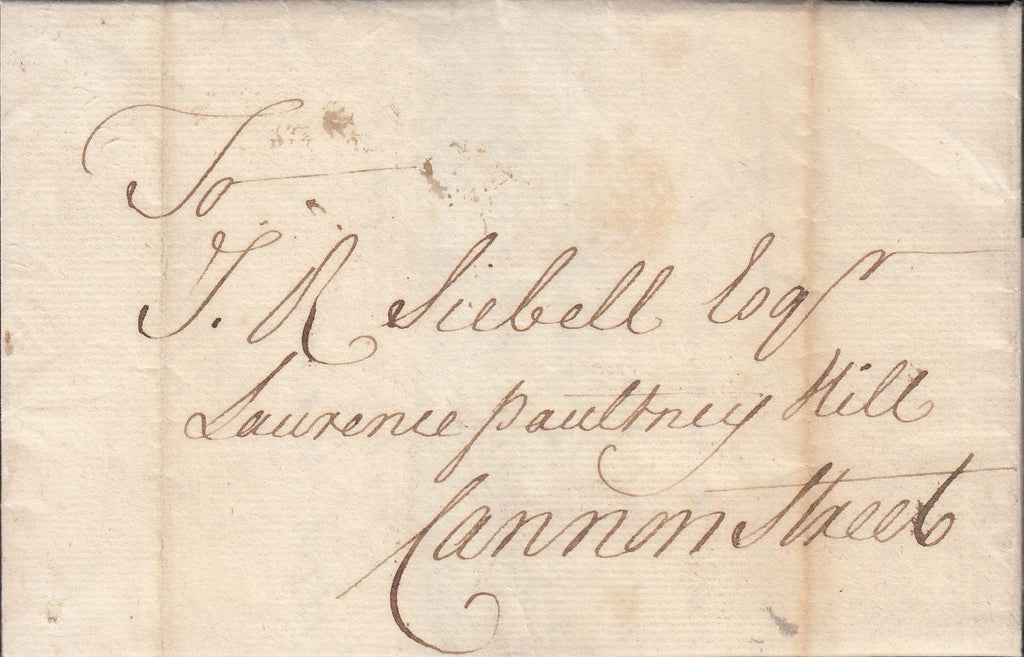 To
J. R Siebell Esqr
Laurence paultney Hill
Cannon Street